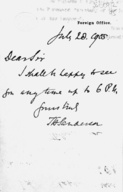 Foreign Office.
July 20. 1905
Dear Sir
I shall be happy to see
you any time up to 6 P.M.
Yours truly
T H Sanderson